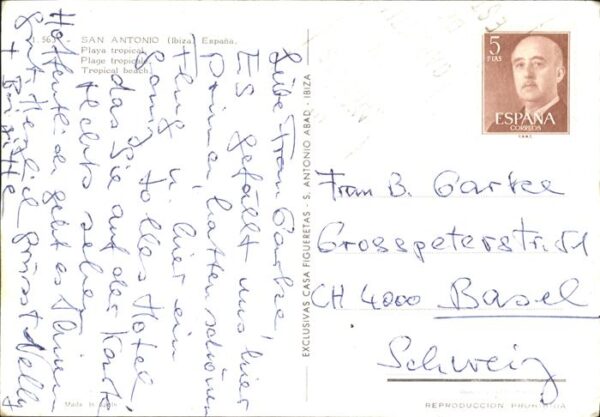 1.563 - SAN ANTONIO (Ibiza) España.
Playa tropical.
Plage tropicale.
Tropical beach.
Liebe Frau Garke,
Es gefällt uns hier
prima, hatten schönen
Flug u. hier ein
ganz tolles Hotel
das Sie auf der Karte
rechts sehen.
Hoffentlich geht es Ihnen
gut. Herzlich grüsst Nelly
+ Brigitte
EXCLUSIVAS CASA FIGUERETAS - S. ANTONIO ABAD - IBIZA
5
PTAS
ESPAÑA
CORREOS
Frau B. Garke
Grosspeterstr. 51
CH 4000 Basel
Schweiz
Made in Spain
REPRODUCCION PROHIBIDA